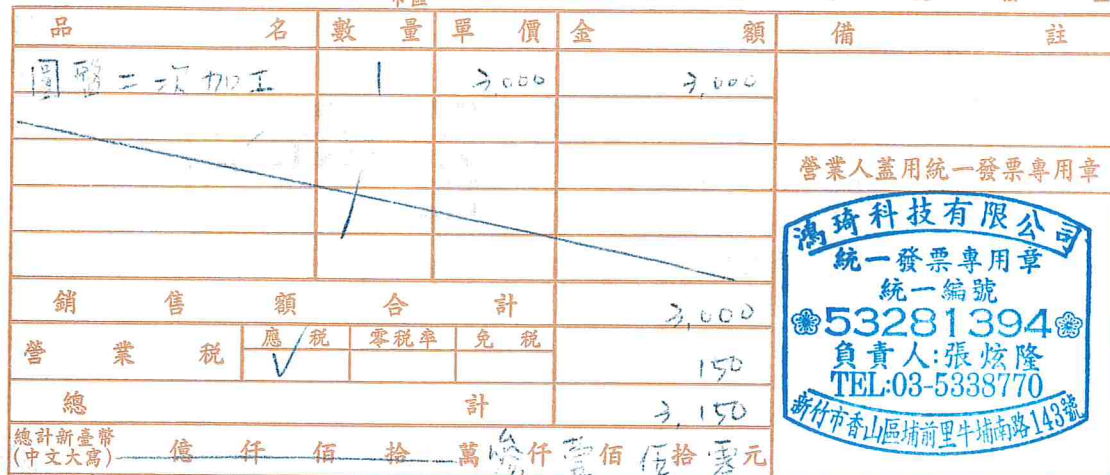 品名 數量 單價 金額 備註
圓盤二次加工 1 3,000 3,000
營業人蓋用統一發票專用章
鴻琦科技有限公司
統一發票專用章
統一編號
53281394
負責人:張炫隆
TEL:03-5338770
新竹市香山區埔前里牛埔南路143號
銷售額合計 3,000
營業稅 應稅 零稅率 免稅 150
V
總計 3,150
總計新臺幣
(中文大寫) 億仟佰拾萬參仟壹佰伍拾零元